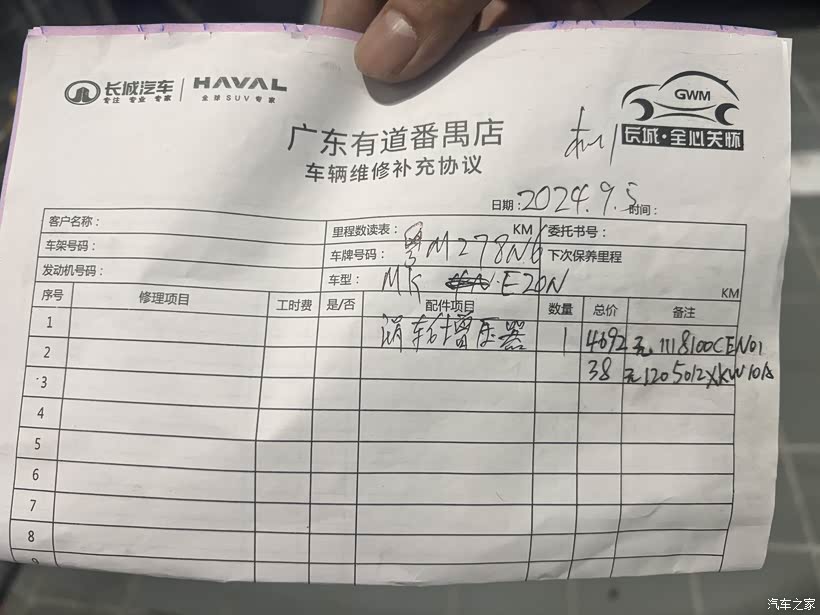 长城汽车 HAVAL
专注 专业 专家 全球SUV专家
GWM
长城·全心关怀
广东有道番禺店
车辆维修补充协议
日期: 2024.9.5 时间:
客户名称: 里程数读表: KM 委托书号:
车架号码: 车牌号码: 粤M278N6 下次保养里程
发动机号码: 车型: E20N KM
序号 修理项目 工时费 是/否 配件项目 数量 总价 备注
1 涡轮增压器 1 4692元 1118100CEN01
2 38元 1205012XKW10A
3
4
5
6
7
8
9
汽车之家